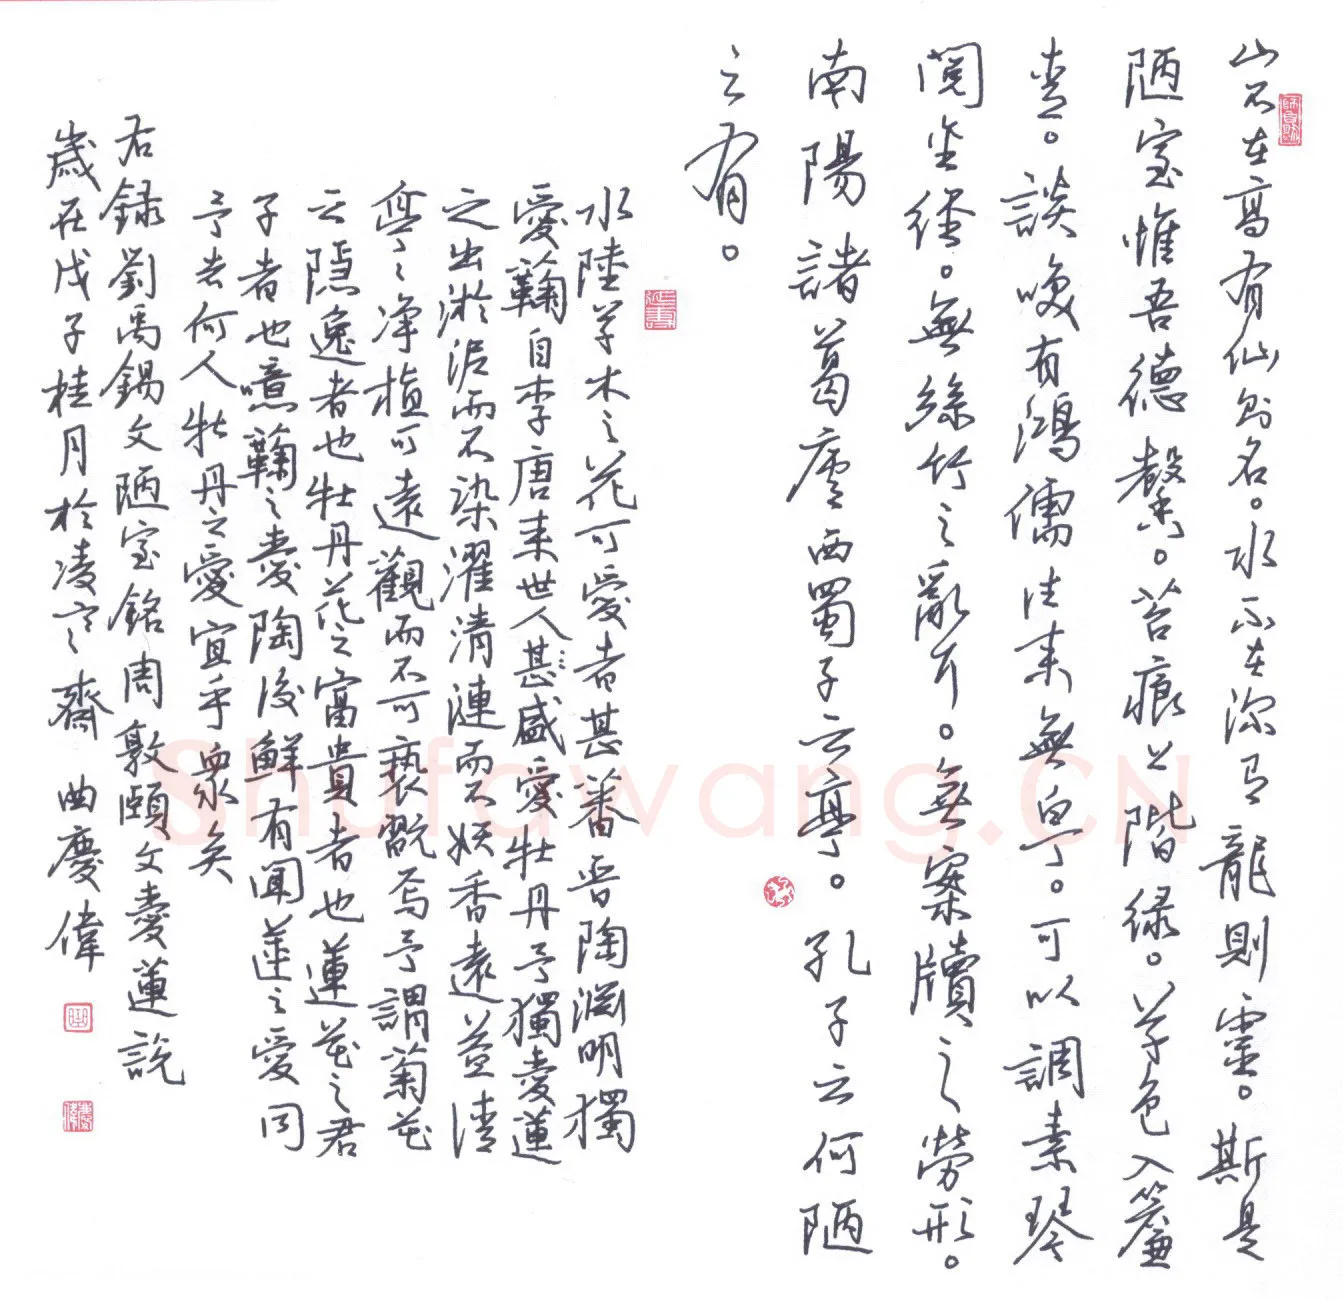 山不在高有仙則名。水不在深有龍則靈。斯是
陋室惟吾德馨。苔痕上階綠。草色入簾
青。談笑有鴻儒往來無白丁。可以調素琴
閱金經。無絲竹之亂耳。無案牘之勞形。
南陽諸葛廬西蜀子云亭。孔子云何陋
之有。
水陸草木之花可愛者甚蕃晋陶淵明獨
愛鞠自李唐来世人甚盛愛牡丹予獨愛蓮
之出淤泥而不染濯清漣而不妖香遠益清
亭々淨植可遠觀而不可褻翫焉予謂菊花
之隱逸者也牡丹花之富貴者也蓮花之君
子者也噫鞠之愛陶後鮮有聞蓮之愛同
予者何人牡丹之愛宜乎衆矣
右録劉禹錫文陋室銘周敦頤文愛蓮説
歲在戊子桂月於凌寒齋 曲慶偉
Shufawang.CN